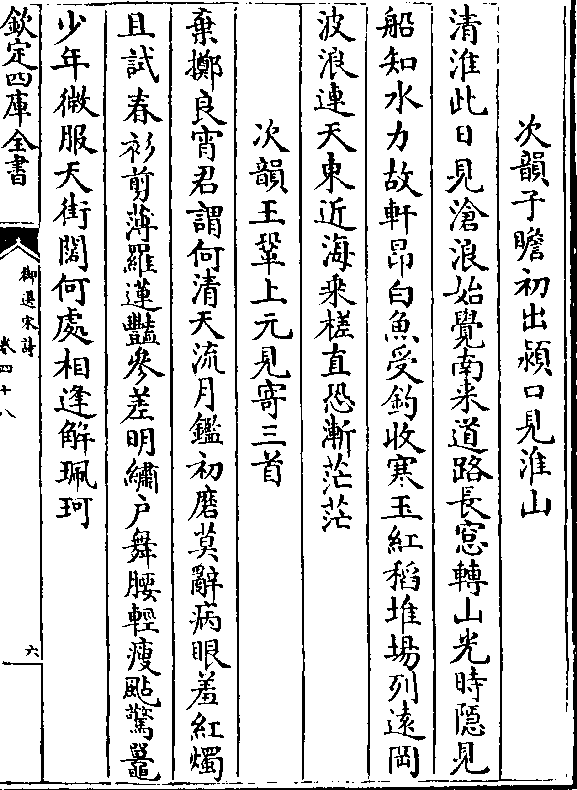 次韻子瞻初出潁口見淮山
清淮此日見滄浪始覺南來道路長窓轉山光時隠見
船知水力故軒昂白魚受釣收寒玉紅稻堆場列遠岡
波浪連天東近海乘槎直恐漸茫茫
次韻王鞏上元見寄三首
棄擲良宵君謂何清天流月鑑初磨莫辭病眼羞紅燭
且試春衫剪薄羅蓮豔參差明繡户舞腰輕瘦颭驚鼉
少年微服天街闊何處相逢解珮珂
欽定四庫全書
御選宋詩
卷四十八
六